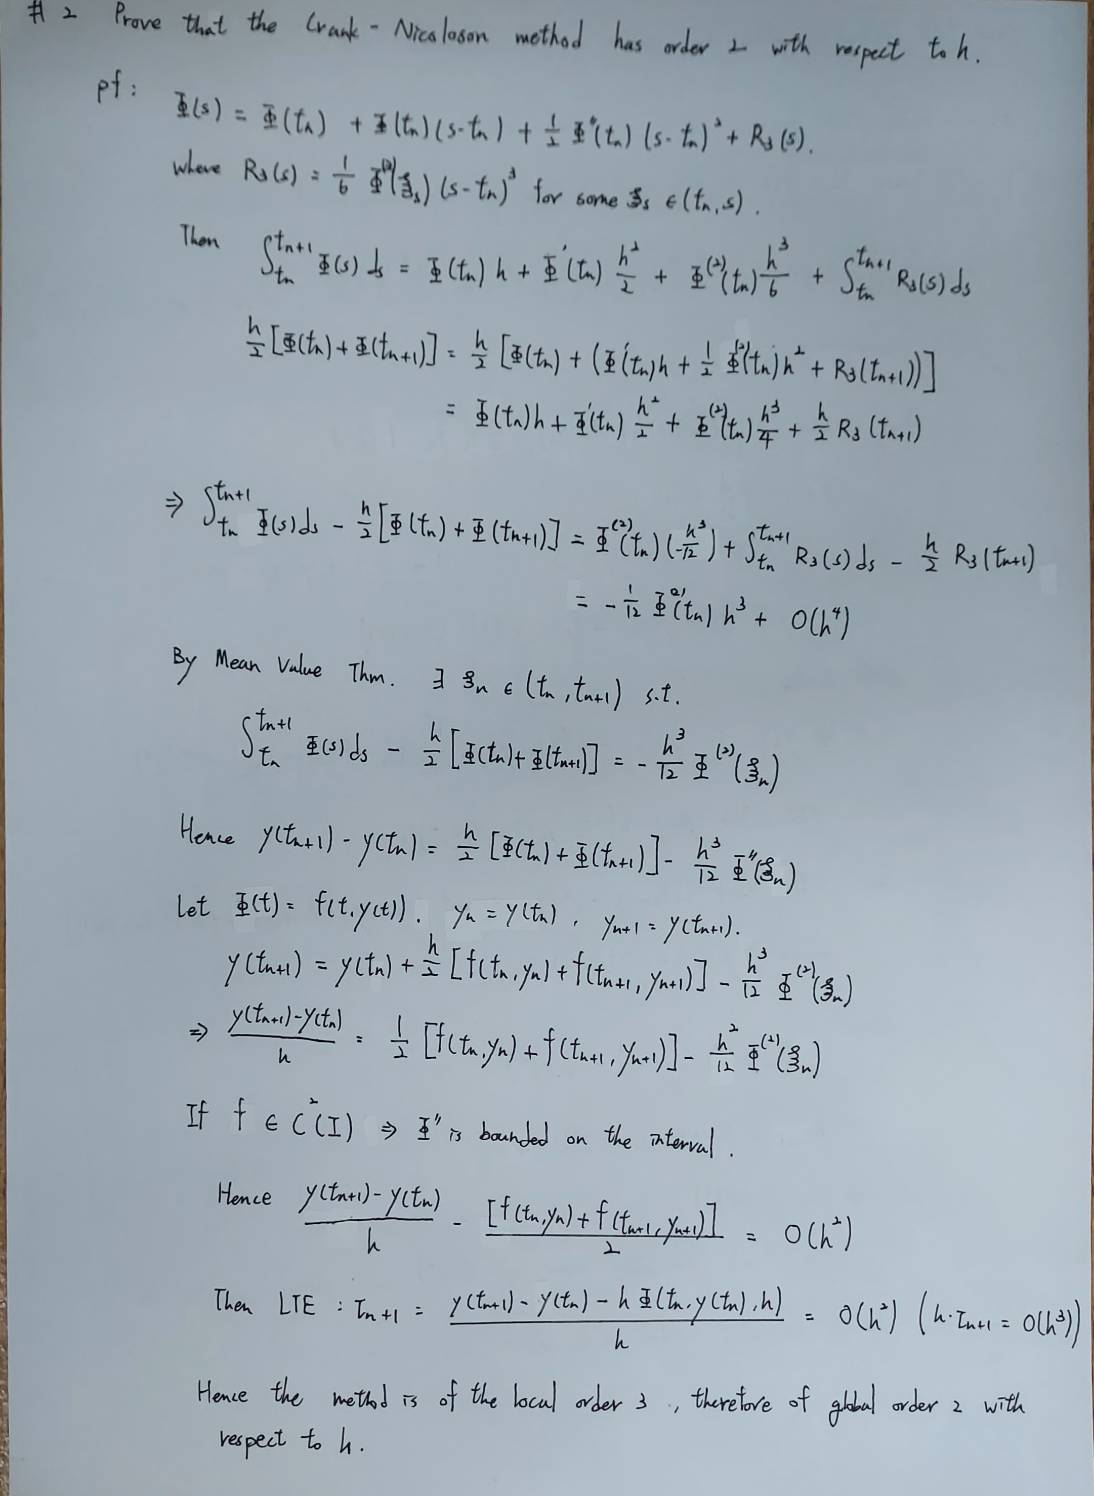 # 2 Prove that the Crank-Nicoloson method has order 2 with respect to h.
pf: Φ(s) = Φ(tₙ) + Φ(tₙ)(s-tₙ) + 1/2 Φ''(tₙ)(s-tₙ)² + R₃(s).
where R₃(s) = 1/6 Φ⁽³⁾(ξₛ)(s-tₙ)³ for some ξₛ ∈ (tₙ,s).
Then ∫_{tₙ}^{tₙ₊₁} Φ(s) ds = Φ(tₙ)h + Φ'(tₙ) h²/2 + Φ⁽²⁾(tₙ) h³/6 + ∫_{tₙ}^{tₙ₊₁} R₃(s) ds
h/2 [Φ(tₙ) + Φ(tₙ₊₁)] = h/2 [Φ(tₙ) + (Φ'(tₙ)h + 1/2 Φ⁽²⁾(tₙ)h² + R₃(tₙ₊₁))]
= Φ(tₙ)h + Φ'(tₙ) h²/2 + Φ⁽²⁾(tₙ) h³/4 + h/2 R₃(tₙ₊₁)
⇒ ∫_{tₙ}^{tₙ₊₁} Φ(s) ds - h/2 [Φ(tₙ) + Φ(tₙ₊₁)] = Φ⁽²⁾(tₙ)(-h³/12) + ∫_{tₙ}^{tₙ₊₁} R₃(s) ds - h/2 R₃(tₙ₊₁)
= -1/12 Φ⁽²⁾(tₙ) h³ + O(h⁴)
By Mean Value Thm. ∃ ξₙ ∈ (tₙ, tₙ₊₁) s.t.
∫_{tₙ}^{tₙ₊₁} Φ(s) ds - h/2 [Φ(tₙ) + Φ(tₙ₊₁)] = -h³/12 Φ⁽²⁾(ξₙ)
Hence y(tₙ₊₁) - y(tₙ) = h/2 [Φ(tₙ) + Φ(tₙ₊₁)] - h³/12 Φ''(ξₙ)
Let Φ(t) = f(t, y(t)). yₙ = y(tₙ), yₙ₊₁ = y(tₙ₊₁).
y(tₙ₊₁) = y(tₙ) + h/2 [f(tₙ, yₙ) + f(tₙ₊₁, yₙ₊₁)] - h³/12 Φ⁽²⁾(ξₙ)
⇒ (y(tₙ₊₁) - y(tₙ))/h = 1/2 [f(tₙ, yₙ) + f(tₙ₊₁, yₙ₊₁)] - h²/12 Φ⁽²⁾(ξₙ)
If f ∈ C²(I) ⇒ Φ'' is bounded on the interval.
Hence (y(tₙ₊₁) - y(tₙ))/h - [f(tₙ, yₙ) + f(tₙ₊₁, yₙ₊₁)]/2 = O(h²)
Then LTE : τₙ₊₁ = (y(tₙ₊₁) - y(tₙ) - h Φ(tₙ, y(tₙ), h))/h = O(h²) (h·τₙ₊₁ = O(h³))
Hence the method is of the local order 3, therefore of global order 2 with
respect to h.